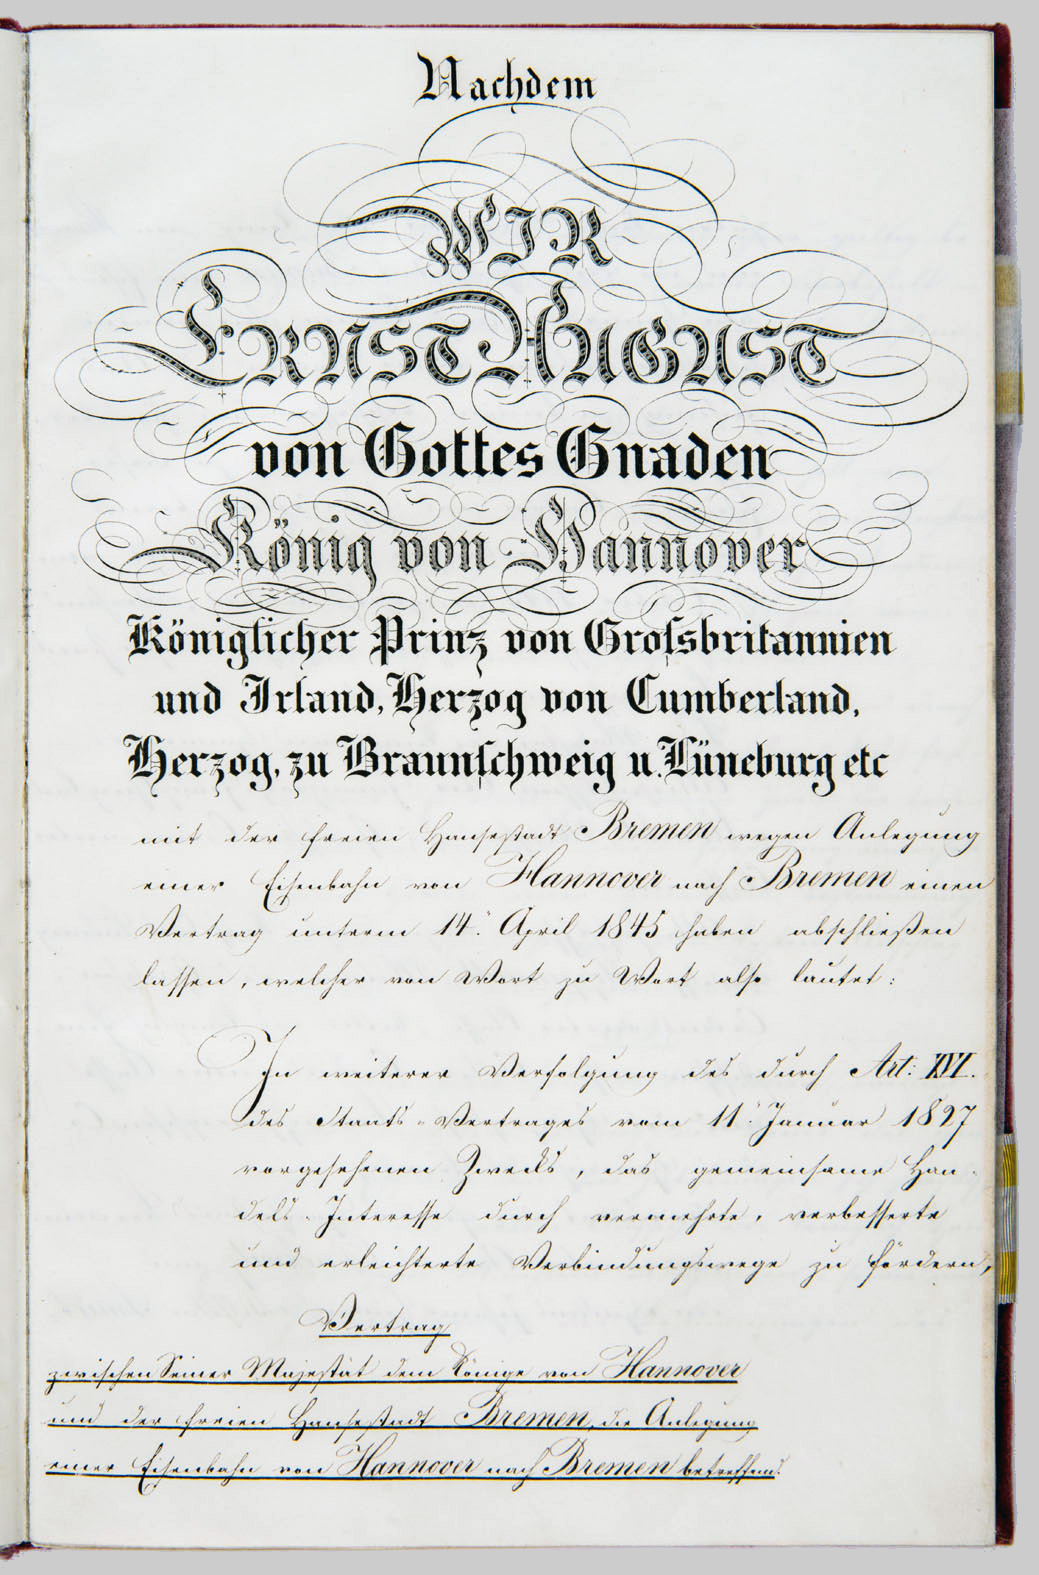 Nachdem
WIR
ERNST AUGUST
von Gottes Gnaden
König von Hannover
Königlicher Prinz von Groſsbritannien
und Irland, Herzog von Cumberland,
Herzog, zu Braunſchweig u. Lüneburg etc
mit der freien Hansestadt Bremen wegen Anlegung
einer Eisenbahn von Hannover nach Bremen einen
Vertrag unterm 14. April 1845 haben abschließen
lassen, welcher von Wort zu Wort also lautet:
In weiterer Verfolgung des durch Art: XVI.
des Staats-Vertrages vom 11. Januar 1827
vorgesehenen Zwecks, das gemeinsame Han-
dels-Interesse durch vermehrte, verbesserte
und erleichterte Verbindungswege zu fördern,
Vertrag
zwischen Seiner Majestät dem Könige von Hannover
und der freien Hansestadt Bremen, die Anlegung
einer Eisenbahn von Hannover nach Bremen betreffend.